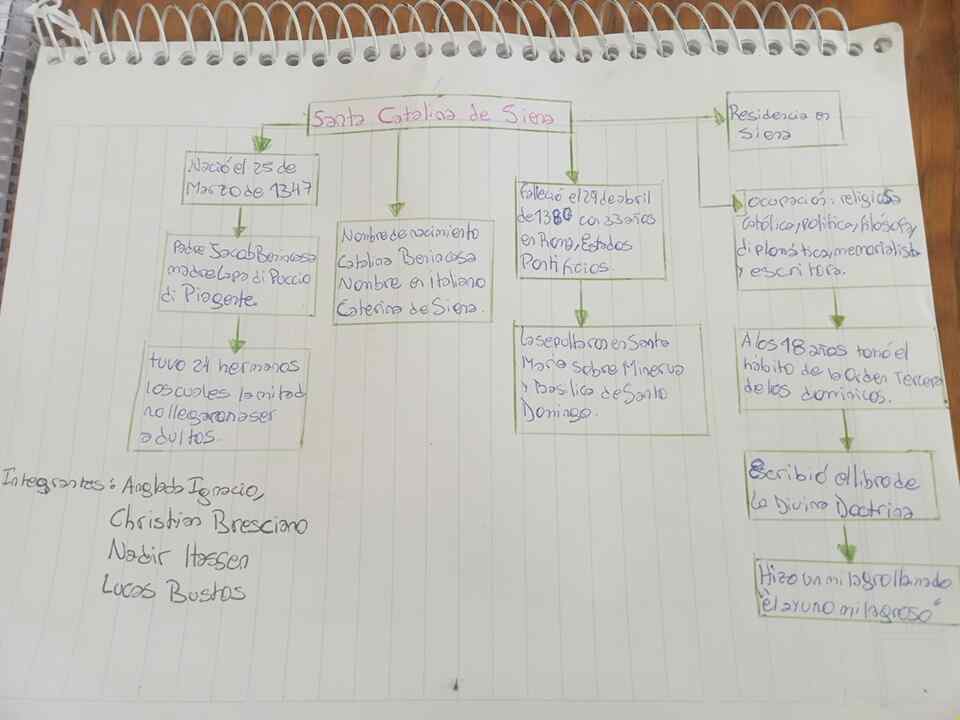 Santa Catalina de Siena
Nació el 25 de
Marzo de 1347
Padre Jacob Benincasa
madre Lapa di Puccio
di Piagente.
tuvo 24 hermanos
los cuales la mitad
no llegaron a ser
adultos.
Nombre de nacimiento
Catalina Benincasa
Nombre en italiano
Caterina de Siena.
Falleció el 29 de abril
de 1380 con 33 años
en Roma, Estados
Pontificios.
La sepultaron en Santa
Maria sobre Minerva
y Basílica de Santo
Domingo.
Residencia en
Siena
ocupación: religiosa
católica, política, filósofa,
diplomática, memorialista
y escritora.
A los 18 años tomó el
hábito de la Orden Tercera
de los dominicos.
Escribió el libro de
la Divina Doctrina
Hizo un milagro llamado
"el ayuno milagroso"
Integrantes: Anglada Ignacio,
Christian Bresciano
Nadir Hassen
Lucas Bustos